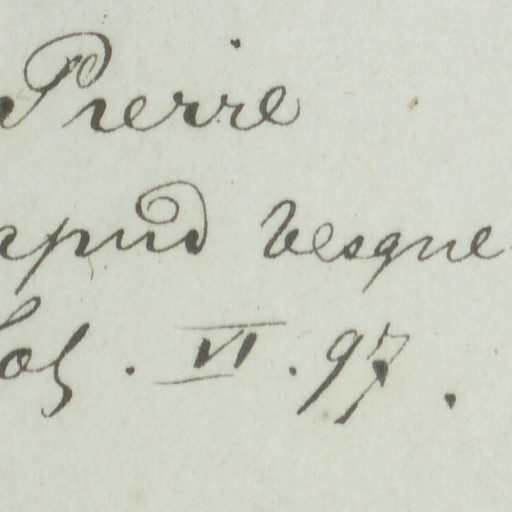 Pierre
apud Vesque
VI. 97.